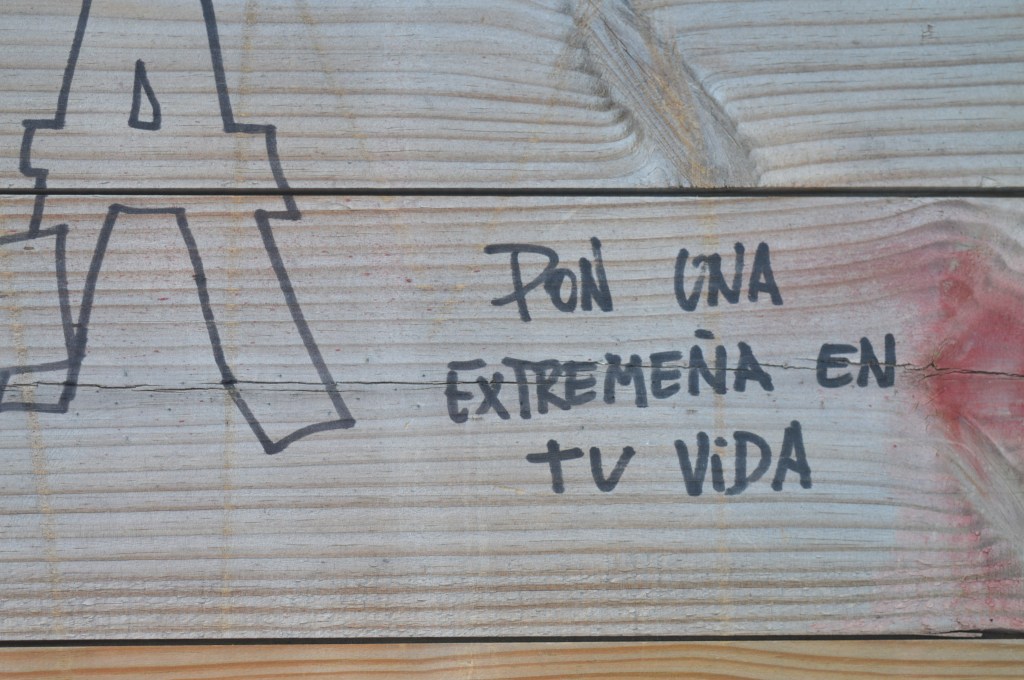 PON UNA
EXTREMEÑA EN
TU ViDA